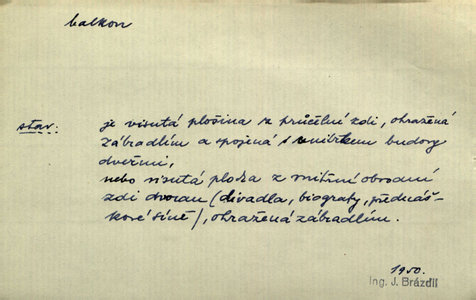 balkon
stav: je visutá plošina z průčelné zdi, ohražená
zábradlím a spojená s vnitřkem budovy
dveřmi,
nebo visutá plocha z vnitřní obvodní
zdi dvoran (divadla, biografy, přednáš-
kové síně), ohražená zábradlím.
1950.
Ing. J. Brázdil